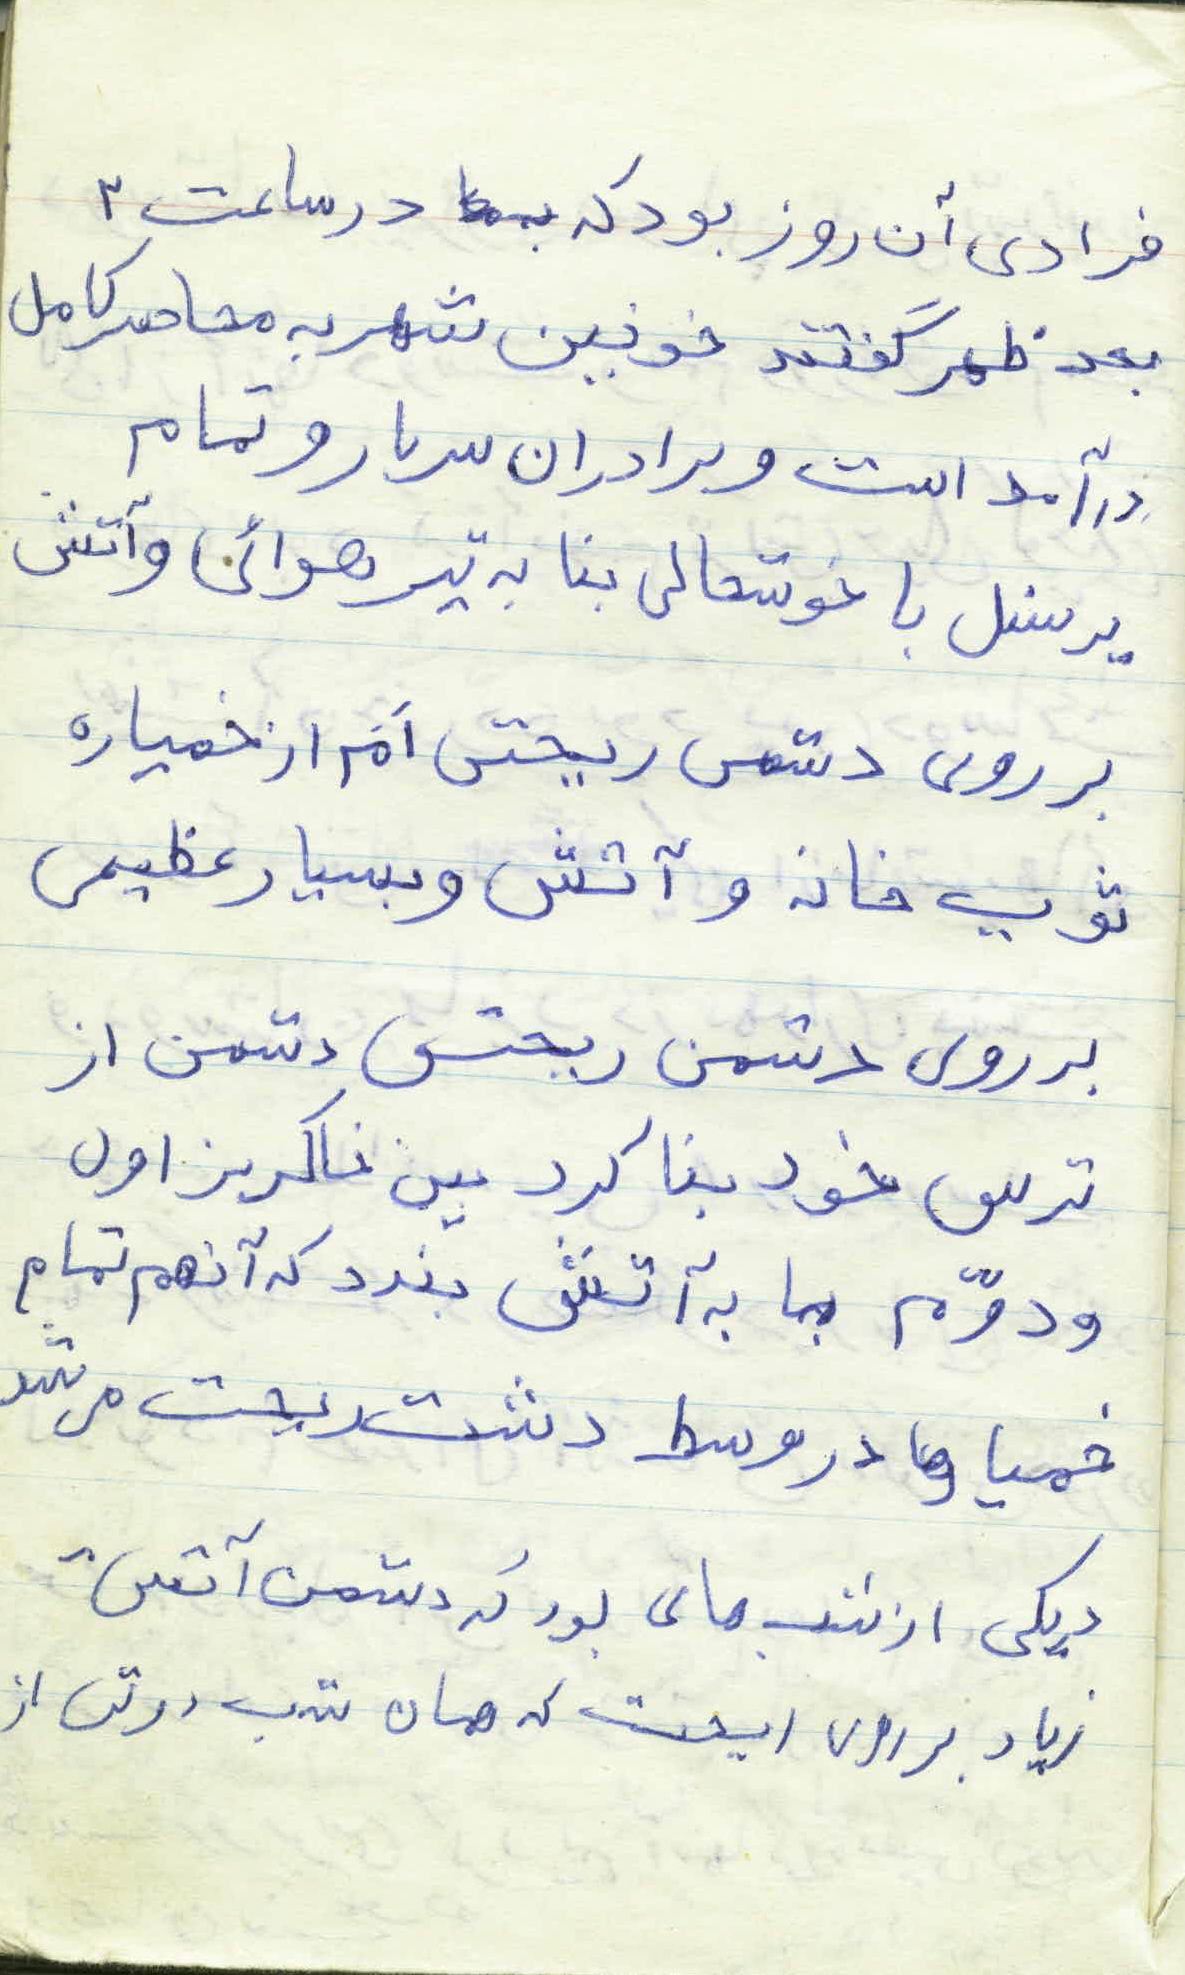 فرادی آن روز بود که در ساعت ۲
بعد ظهر گفتند خونین شهر به محاصر کامل
درآمد است و برادران سرباز و تمام
پرسنل با خوشحالی بنا به تیر هوائی و آتش
بر روی دشمن ریختن اَم از خمپاره
توپ خانه و آتش و بسیار عظیمی
بر روی دشمن ریختن دشمن از
ترس خود بنا کرد بین خاکریز اول
و دوّم بما به آتش بندد که آنهم تمام
خمپارها در وسط دشت ریخت می شد
دریکی از شب های بود که دشمن آتش
زیاد بر روی ریخت که همان شب دوتن از